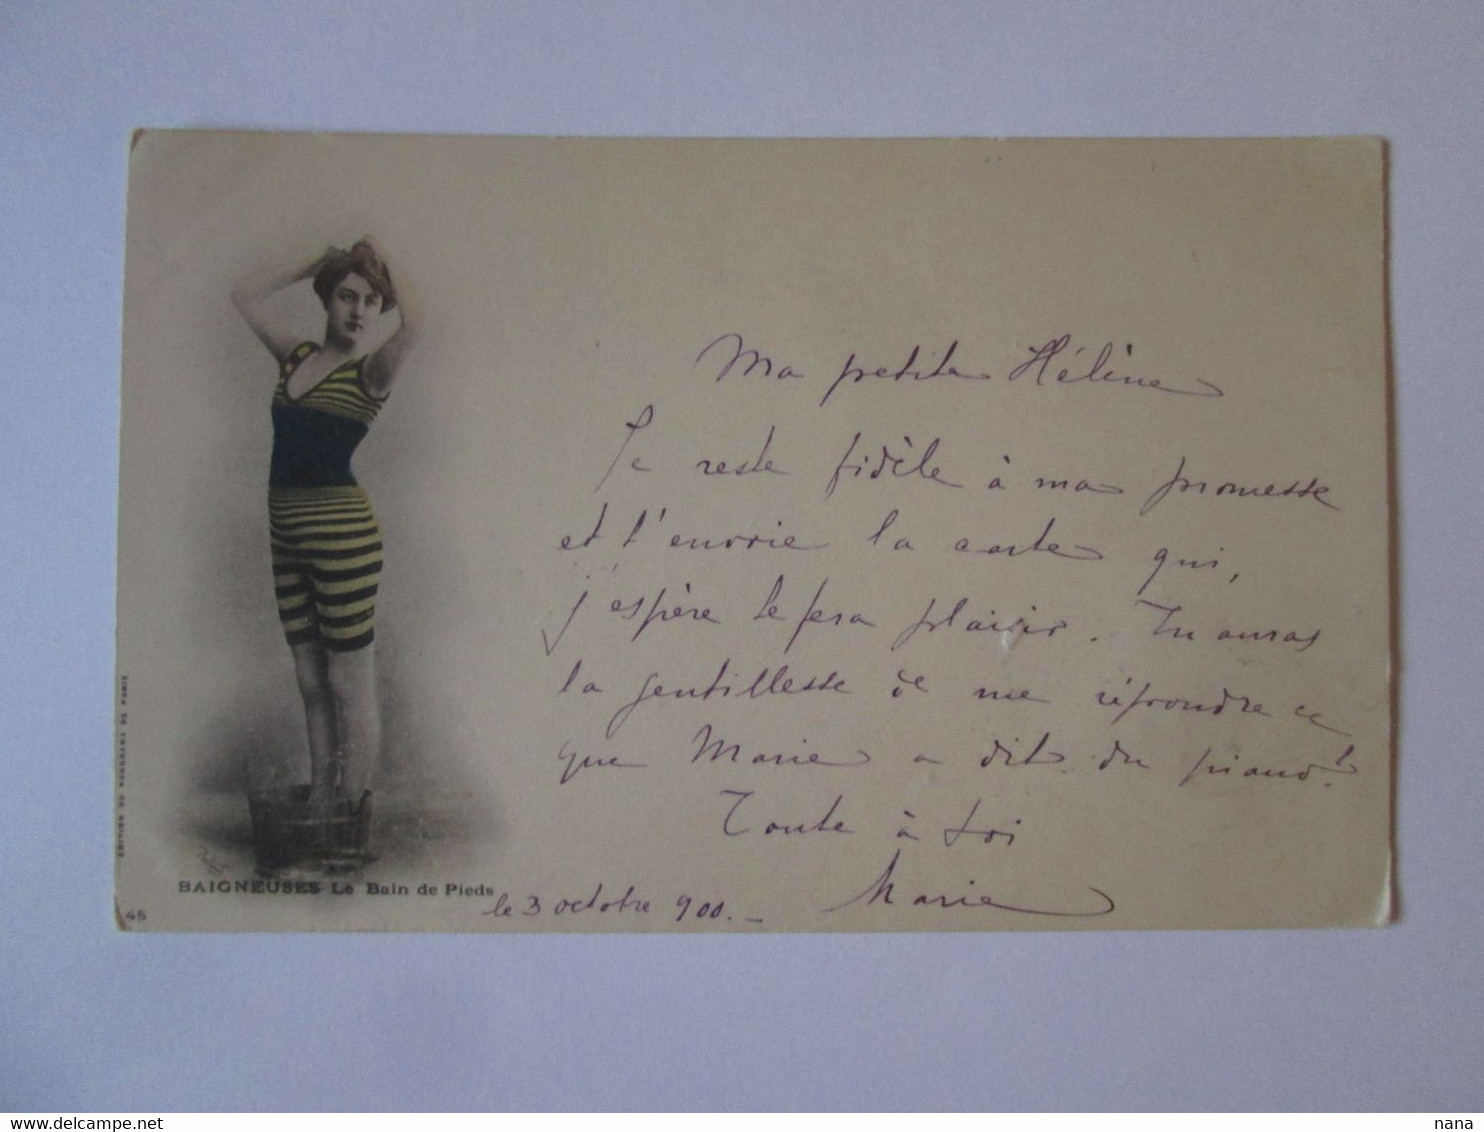 Ma petite Hélène
Je reste fidèle à ma promesse
et t'envoie la carte qui,
j'espère te fera plaisir. Tu auras
la gentillesse de me répondre ce
que Marie a dit du piano!
Toute à toi
Marie
le 3 octobre 900._
BAIGNEUSES Le Bain de Pieds
45
EDITION DU PANORAMA DE PARIS
nana